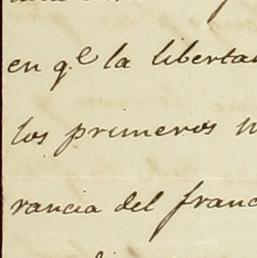 en qᵉ la liberta
los primeros
rancia del franc